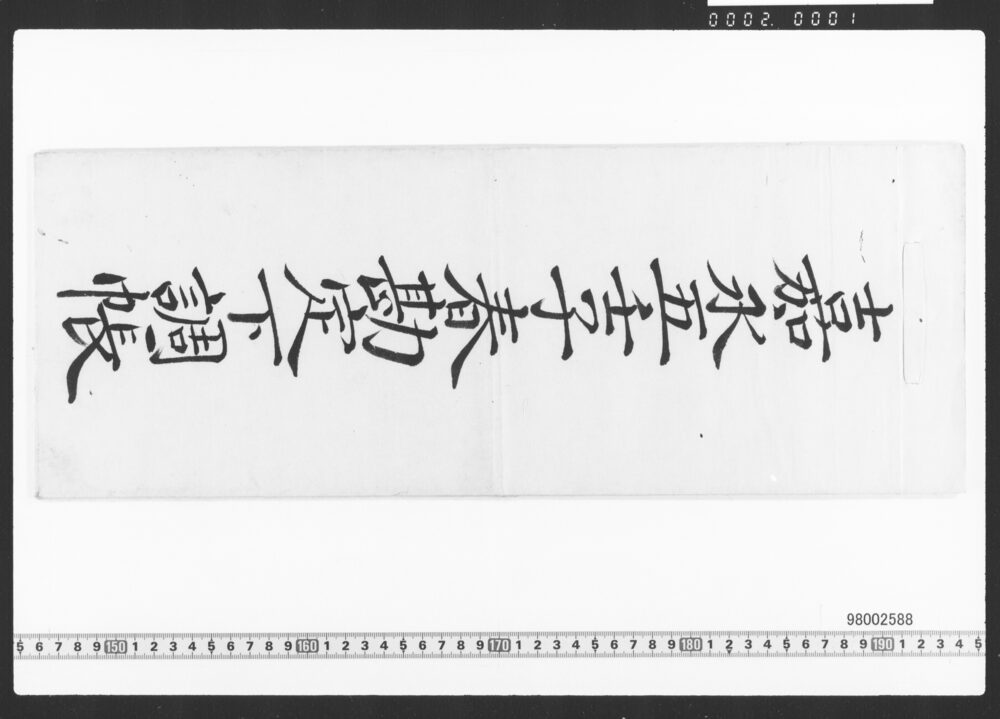 0002. 0001
嘉永五壬子春勘定下調帳
98002588
5 6 7 8 9 150 1 2 3 4 5 6 7 8 9 160 1 2 3 4 5 6 7 8 9 170 1 2 3 4 5 6 7 8 9 180 1 2 3 4 5 6 7 8 9 190 1 2 3 4 5